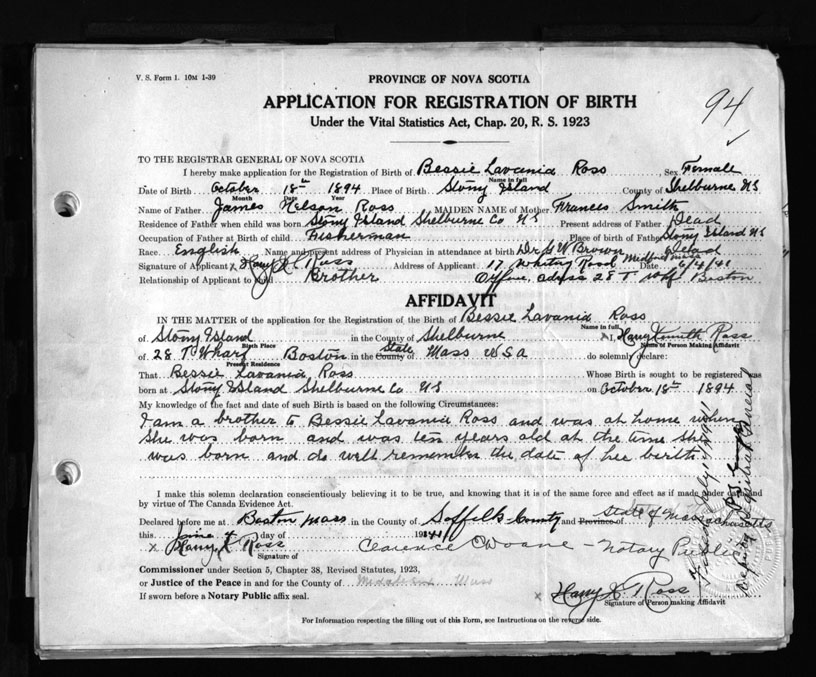 V. S. Form 1. 10M 1-39
PROVINCE OF NOVA SCOTIA
94
APPLICATION FOR REGISTRATION OF BIRTH
Under the Vital Statistics Act, Chap. 20, R. S. 1923
TO THE REGISTRAR GENERAL OF NOVA SCOTIA
I hereby make application for the Registration of Birth of Bessie Lavania Ross Sex Female
Name in full
Date of Birth October 18th 1894 Place of Birth Stony Island County of Shelburne NS
Month Date Year
Name of Father James Nelson Ross MAIDEN NAME of Mother Frances Smith
Residence of Father when child was born Stony Island Shelburne Co NS Present address of Father Dead
Occupation of Father at Birth of child Fisherman Place of birth of Father Stony Island NS
Race English Name and present address of Physician in attendance at birth Dr Brown Dead
Signature of Applicant x Harry K Ross Address of Applicant 17 Whiting Road Medford Mass Date 6/4/41
Relationship of Applicant to child Brother Office adress 28 T Whf Boston
AFFIDAVIT
IN THE MATTER of the application for the Registration of Birth of Bessie Lavania Ross
Name in full
of Stony Island in the County of Shelburne I, Harry Ross
Birth Place Name of Person Making Affidavit
of 28 T Wharf Boston in the County of State Mass USA do solemnly declare:
Present Residence
That Bessie Lavania Ross Whose Birth is sought to be registered was
born at Stony Island Shelburne Co NS on October 18th 1894
My knowledge of the fact and date of such Birth is based on the following Circumstances:
I am a brother to Bessie Lavania Ross and was at home when
she was born and was ten years old at the time she
was born and do well remember the date of her berith
I make this solemn declaration conscientiously believing it to be true, and knowing that it is of the same force and effect as if made under oath and
by virtue of The Canada Evidence Act.
Declared before me at Boston Mass in the County of Soffolk County and Province of State of Massachusetts
this June 4 day of 1941
x Harry K Ross Clarence Doane - Notary Public
Signature of
Commissioner under Section 5, Chapter 38, Revised Statutes, 1923,
or Justice of the Peace in and for the County of Mass
If sworn before a Notary Public affix seal.
x Harry K Ross
Signature of Person making Affidavit
For Information respecting the filling out of this Form, see Instructions on the reverse side.